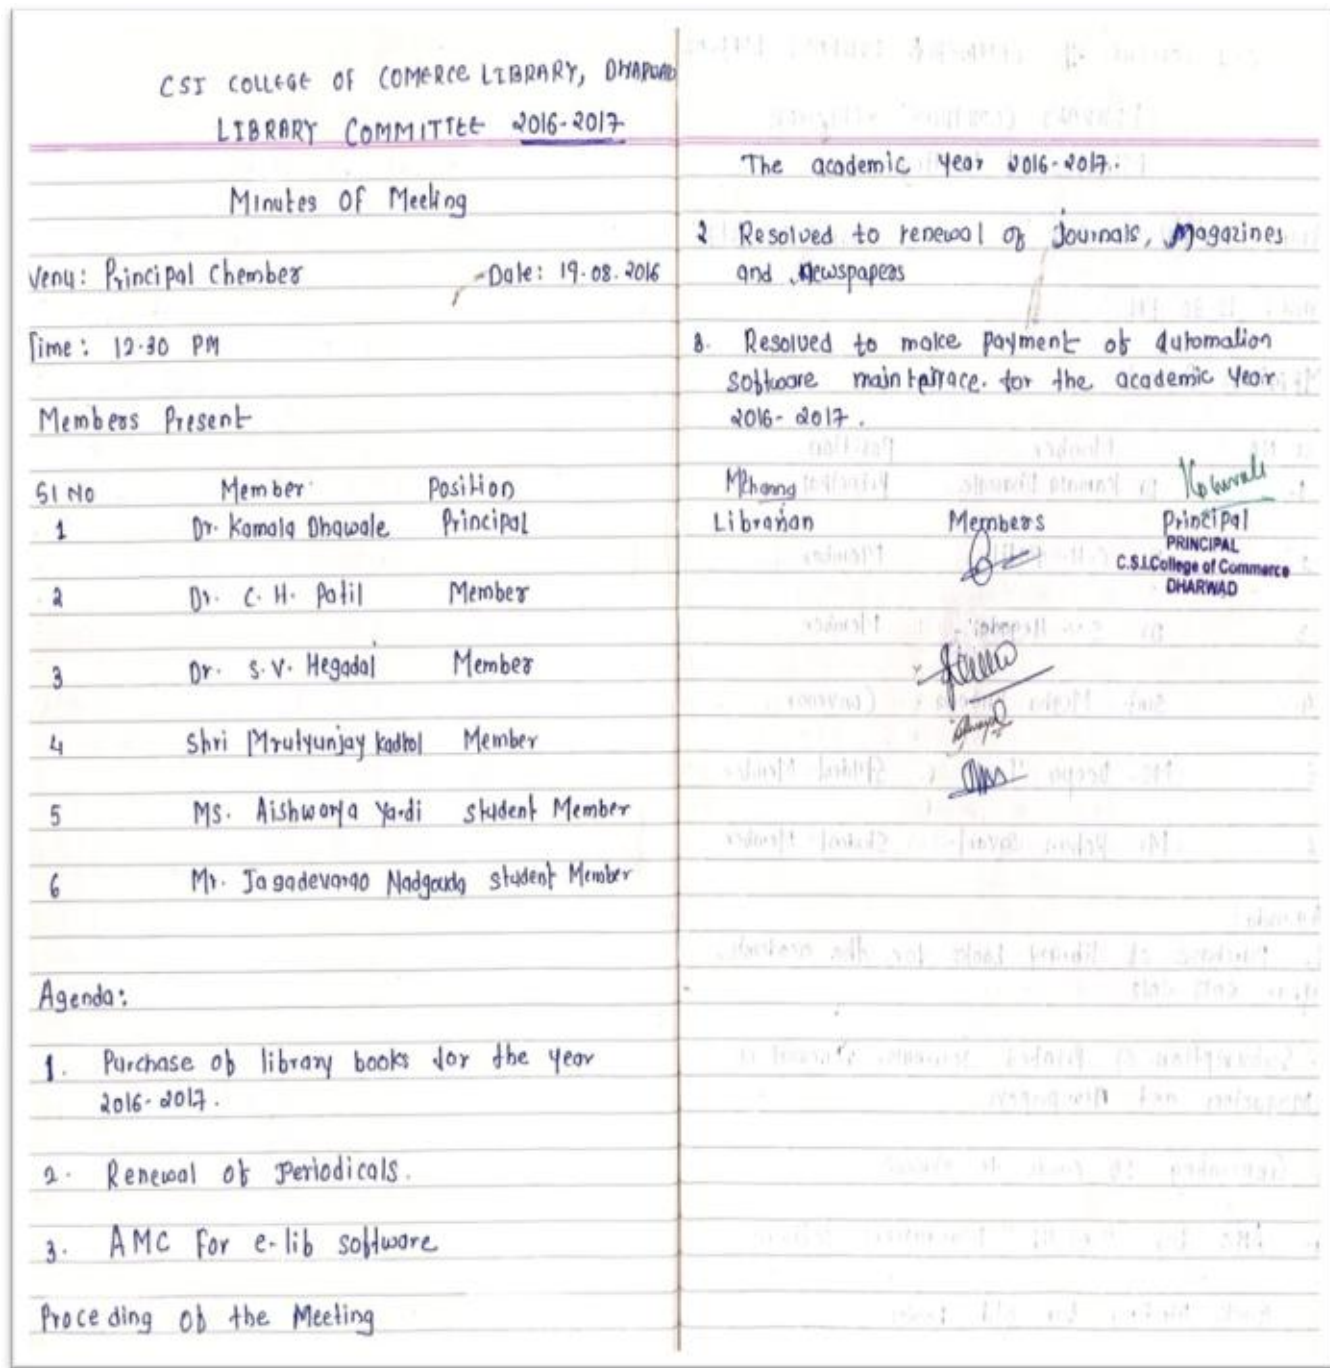 CSI COLLEGE OF COMERCE LIBRARY, DHARWAD
LIBRARY COMMITTEE 2016-2017
Minutes OF Meeting
Venu: Principal Chember Date: 19.08.2016
Time: 12.30 PM
Members Present
Sl No Member Position
1 Dr. Kamala Dhawale Principal
2 Dr. C. H. Patil Member
3 Dr. S. V. Hegadal Member
4 Shri Mrutyunjay Kadkol Member
5 Ms. Aishworya Yardi student Member
6 Mr. Jagadevarao Nadgouda student Member
Agenda:
1. Purchase of library books for the year
2016-2017.
2. Renewal of Periodicals.
3. AMC For e-lib software
Proceding of the Meeting
The academic year 2016-2017.
2 Resolved to renewal of Journals, Magazines
and Newspapers
3. Resolved to make payment of automation
software for the academic year
2016-2017.
Librarian Members Principal
PRINCIPAL
C.S.I.College of Commerce
DHARWAD